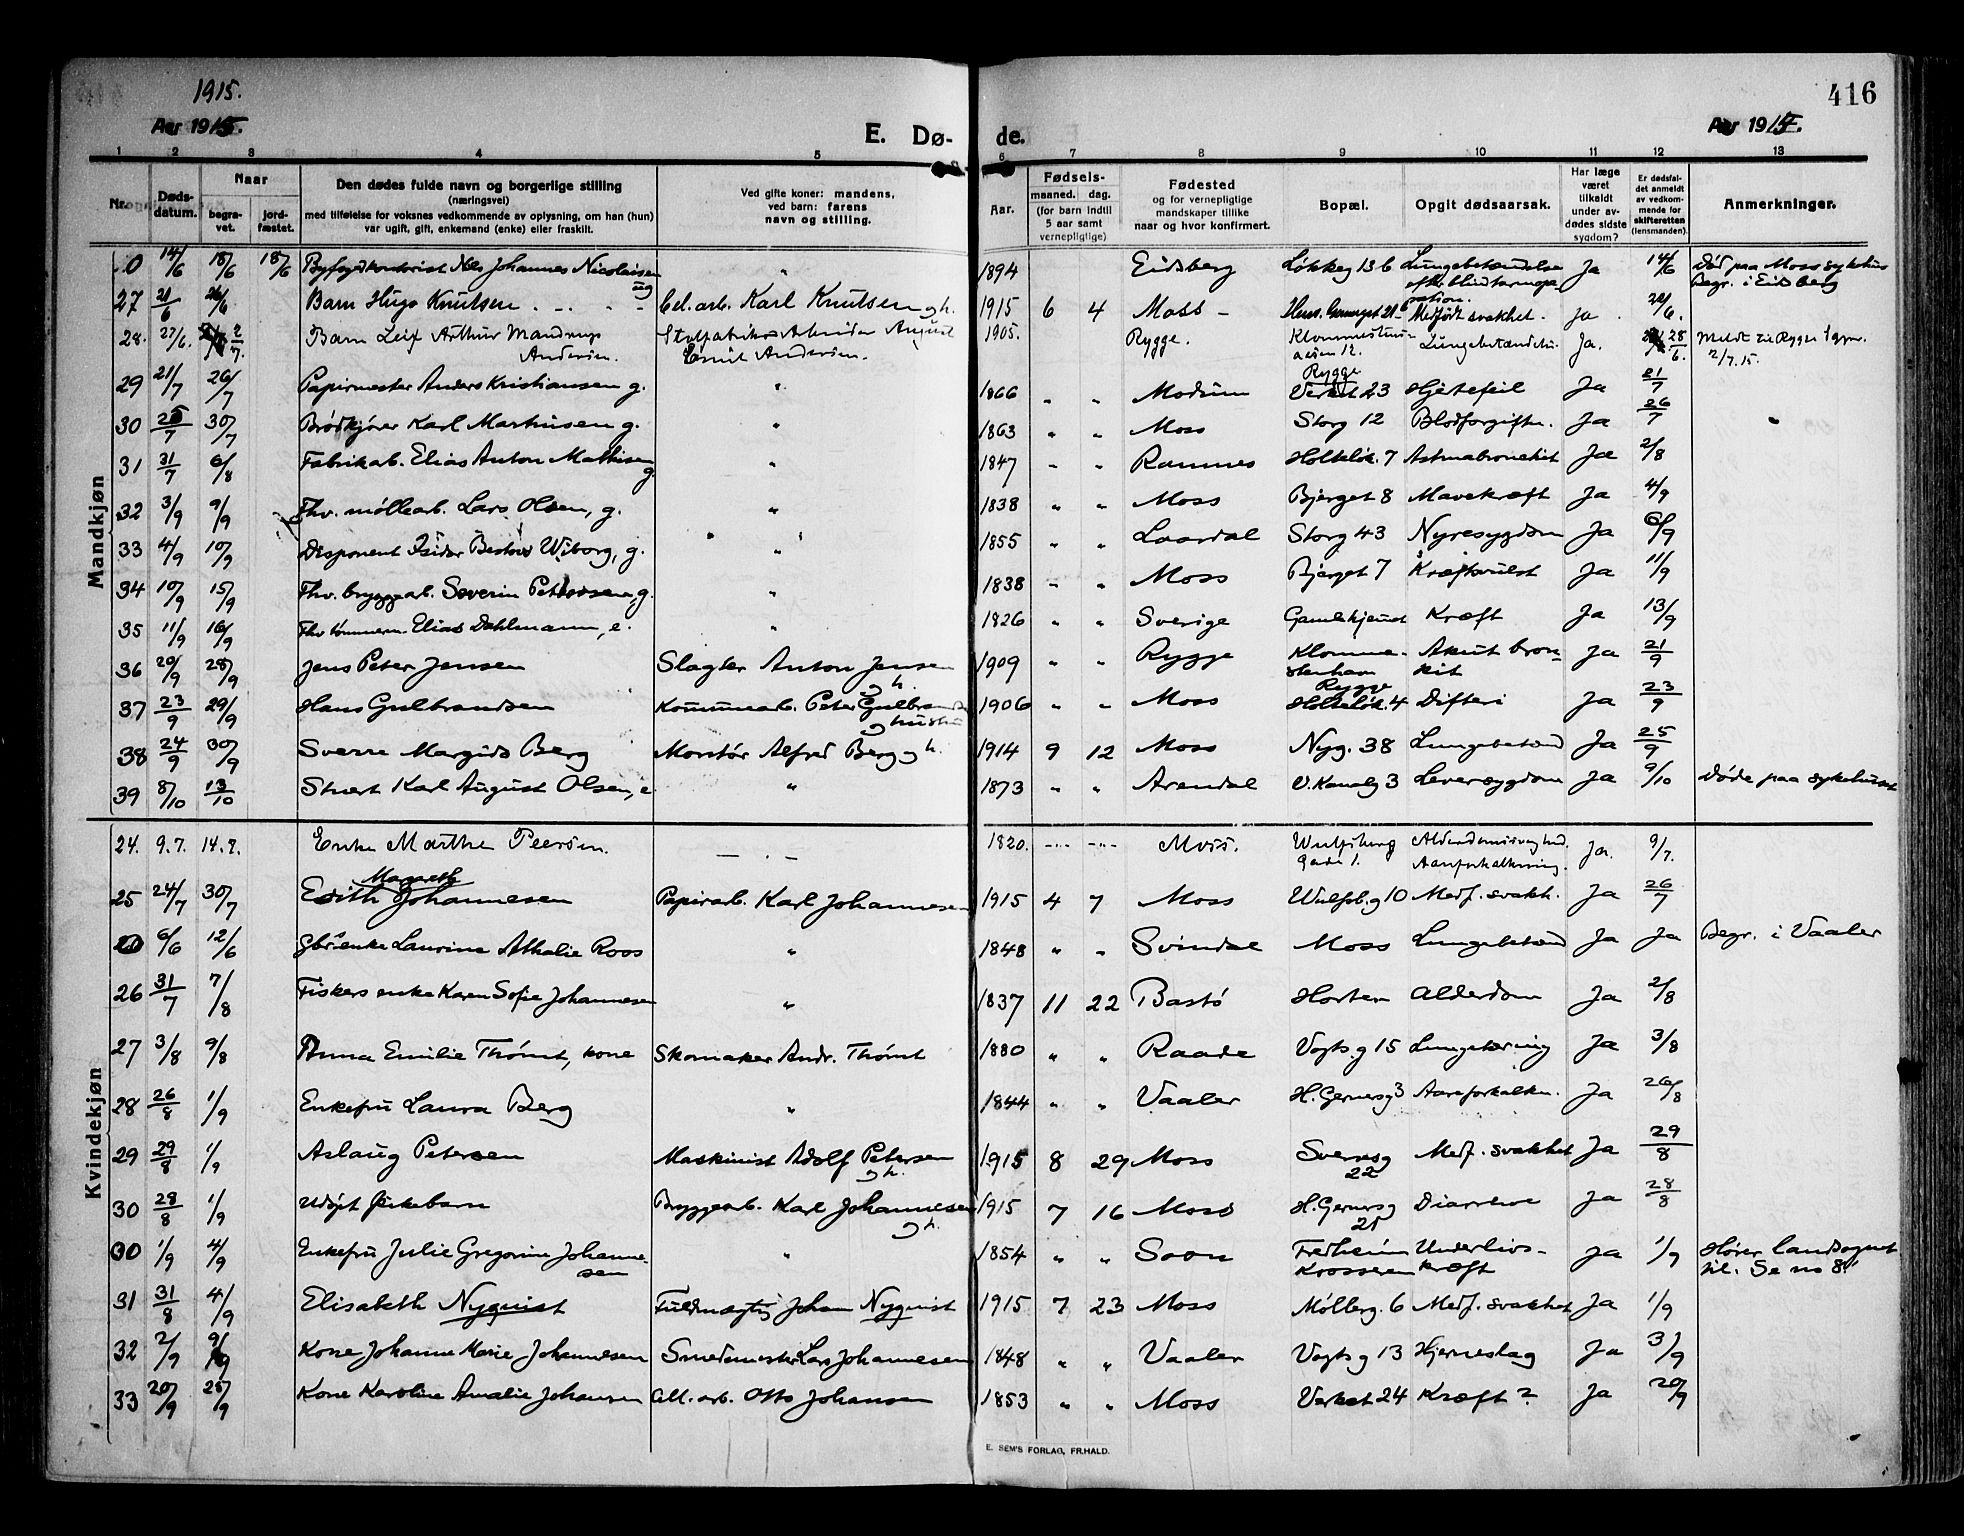 1915.
416
Aar 1915.
E. Dø-
de.
Aar 1915.
1 2 3 4 5 6 7 8 9 10 11 12 13
Nr. Døds-datum. Naar begra-vet. jord-fæstet. Den dødes fulde navn og borgerlige stilling (næringsvei) med tilføielse for voksnes vedkommende av oplysning, om han (hun) var ugift, gift, enkemand (enke) eller fraskilt. Ved gifte koner: mandens, ved barn: farens navn og stilling. Aar. Fødsels- maaned. dag. (for barn indtil 5 aar samt vernepligtige) Fødested og for vernepligtige mandskaper tillike naar og hvor konfirmert. Bopæl. Opgit dødsaarsak. Har læge været tilkaldt under av-dødes sidste sygdom? Er dødsfal-det anmeldt av vedkom-mende for skifteretten (lensmanden). Anmerkninger.
Mandkjøn
0 14/6 18/6 18/6 Byfogdkontorist Nils Johannes Nicolaisen ug " 1894 Eidsberg Løkkeg 13 b Lungebetændelse efter blindtarmope ration. Ja 14/6 Død paa Moss sykehus Begr. i Eidsberg
27 21/6 26/6 Barn Hugo Knutsen Cel. arb. Karl Knutsen g h. 1915 6 4 Moss Medfødt svakhet. Ja 22/6.
28. 27/6. 2/7. Barn Leif Arthur Mandrup Andersen. Arbeider August Emil Andersen. 1905. Rygge. Lungebetændelse. Ja. 28/6. Meldt til Rygge 2/7.15.
29 21/7 26/7 Papirmester Anders Kristiansen g. " 1866 " " Modum Rygge Verket 23 Hjertefeil Ja 21/7
30 25/7 30/7 Brødkjører Karl Marthinsen g. " 1863 " " Moss Storg 12 Blodforgiftn. Ja 26/7 "
31 31/7 6/8 Fabrikab. Elias Anton Mathisen g. " 1847 " " Ramnes Holteløk. 7 Astmabronchit Ja 2/8
32 3/9 9/9 Fhv. møllearb. Lars Olsen, g. " 1838 " " Moss Bjerget 8 Mavekræft Ja 4/9
33 4/9 10/9 Disponent Isidor Wiborg, g. " 1855 " " Laardal Storg 43 Nyresygdom Ja 6/9
34 10/9 15/9 Fhv. bryggearb. Severin Pettersen, g. " 1838 " " Moss Bjerget 7 Kræftsvulst Ja 11/9
35 11/9 16/9 Fhv tømmerm. Elias Dahlmann, e. " 1826 " " Sverige Gamlehjemmet Kræft Ja 13/9
36 20/9 28/9 Jens Peter Jensen Slagter Anton Jensen g h. 1909 " " Rygge Klomme-stenhavn Rygge Akut bron-kit Ja 21/9
37 23/9 29/9 Hans Gulbrandsen Kommunearb. Peter Gulbrandsen g hustru 1906 " " Moss Holteløk. 4 Difteri Ja 23/9
38 24/9 30/9 Sverre Margido Berg Montør Alfred Berg g h. 1914 9 12 Moss Nyg. 38 Lungebetænd Ja 25/9
39 8/10 13/10 Stuert Karl August Olsen, e " 1873 " " Arendal V. Kanalg 3 Leversygdom Ja 9/10 Døde paa sykehuset
Kvindekjøn
24. 9.7. 14.7. Enke Marthe Peersen. 1820. Moss. Wulfsbergs gade 1. Alderdomssvaghed. Aareforkalkning. Ja. 9/7.
25 24/7 30/7 Edith Margreth Johannesen Papirarb. Karl Johannesen 1915 4 7 Moss Wulfsb. g 10 Medf. svakh. Ja 26/7
6/6 12/6 Gbr.enke Laurine Athalie Roos " 1848 " " Svindal Moss Lungebetænd Ja Ja Begr. i Vaaler
26 31/7 7/8 Fiskers enke Karen Sofie Johannesen " 1837 11 22 Bastø Horten Alderdom Ja 2/8
27 3/8 9/8 Anna Emilie Thømt, kone Skomaker Andr. Thømt 1880 " " Raade Vogts. g 15 Lungetæring Ja 3/8
28 26/8 1/9 Enkefru Laura Berg " 1844 " " Vaaler H. Gernersg 3 Aareforkalkn. Ja 26/8
29 29/8 1/9 Aslaug Petersen Maskinist Adolf Petersen g h. 1915 8 29 Moss Sverresg 22 Medf. svakhet Ja 29/8
30 28/8 1/9 Udøpt pikebarn Bryggearb. Karl Johannesen g h. 1915 7 16 Moss H. Gernersg 25 Diarrhoe Ja 28/8
30 1/9 4/9 Enkefru Julie Gregorine Johanne-sen " 1854 " " Soon Fredheim Krosseren Underlivs-kræft Ja 1/9 Hører landsognet til. Se no 8!
31 31/8 4/9 Elisabeth Nyquist Fuldmægtig Johan Nyquist 1915 7 23 Moss Møllerg. 6 Medf. svakhet Ja 1/9
32 2/9 9/9 Kone Johanne Marie Johannesen Smedmester Lars Johannesen 1848 " " Vaaler Vogts g 13 Hjerneslag Ja 3/9
33 20/9 25/9 Kone Karoline Amalie Johansen Cell. arb. Otto Johansen 1853 " " Moss Verket 24 Kræft? Ja 20/9
E. SEM'S FORLAG, FR.HALD.